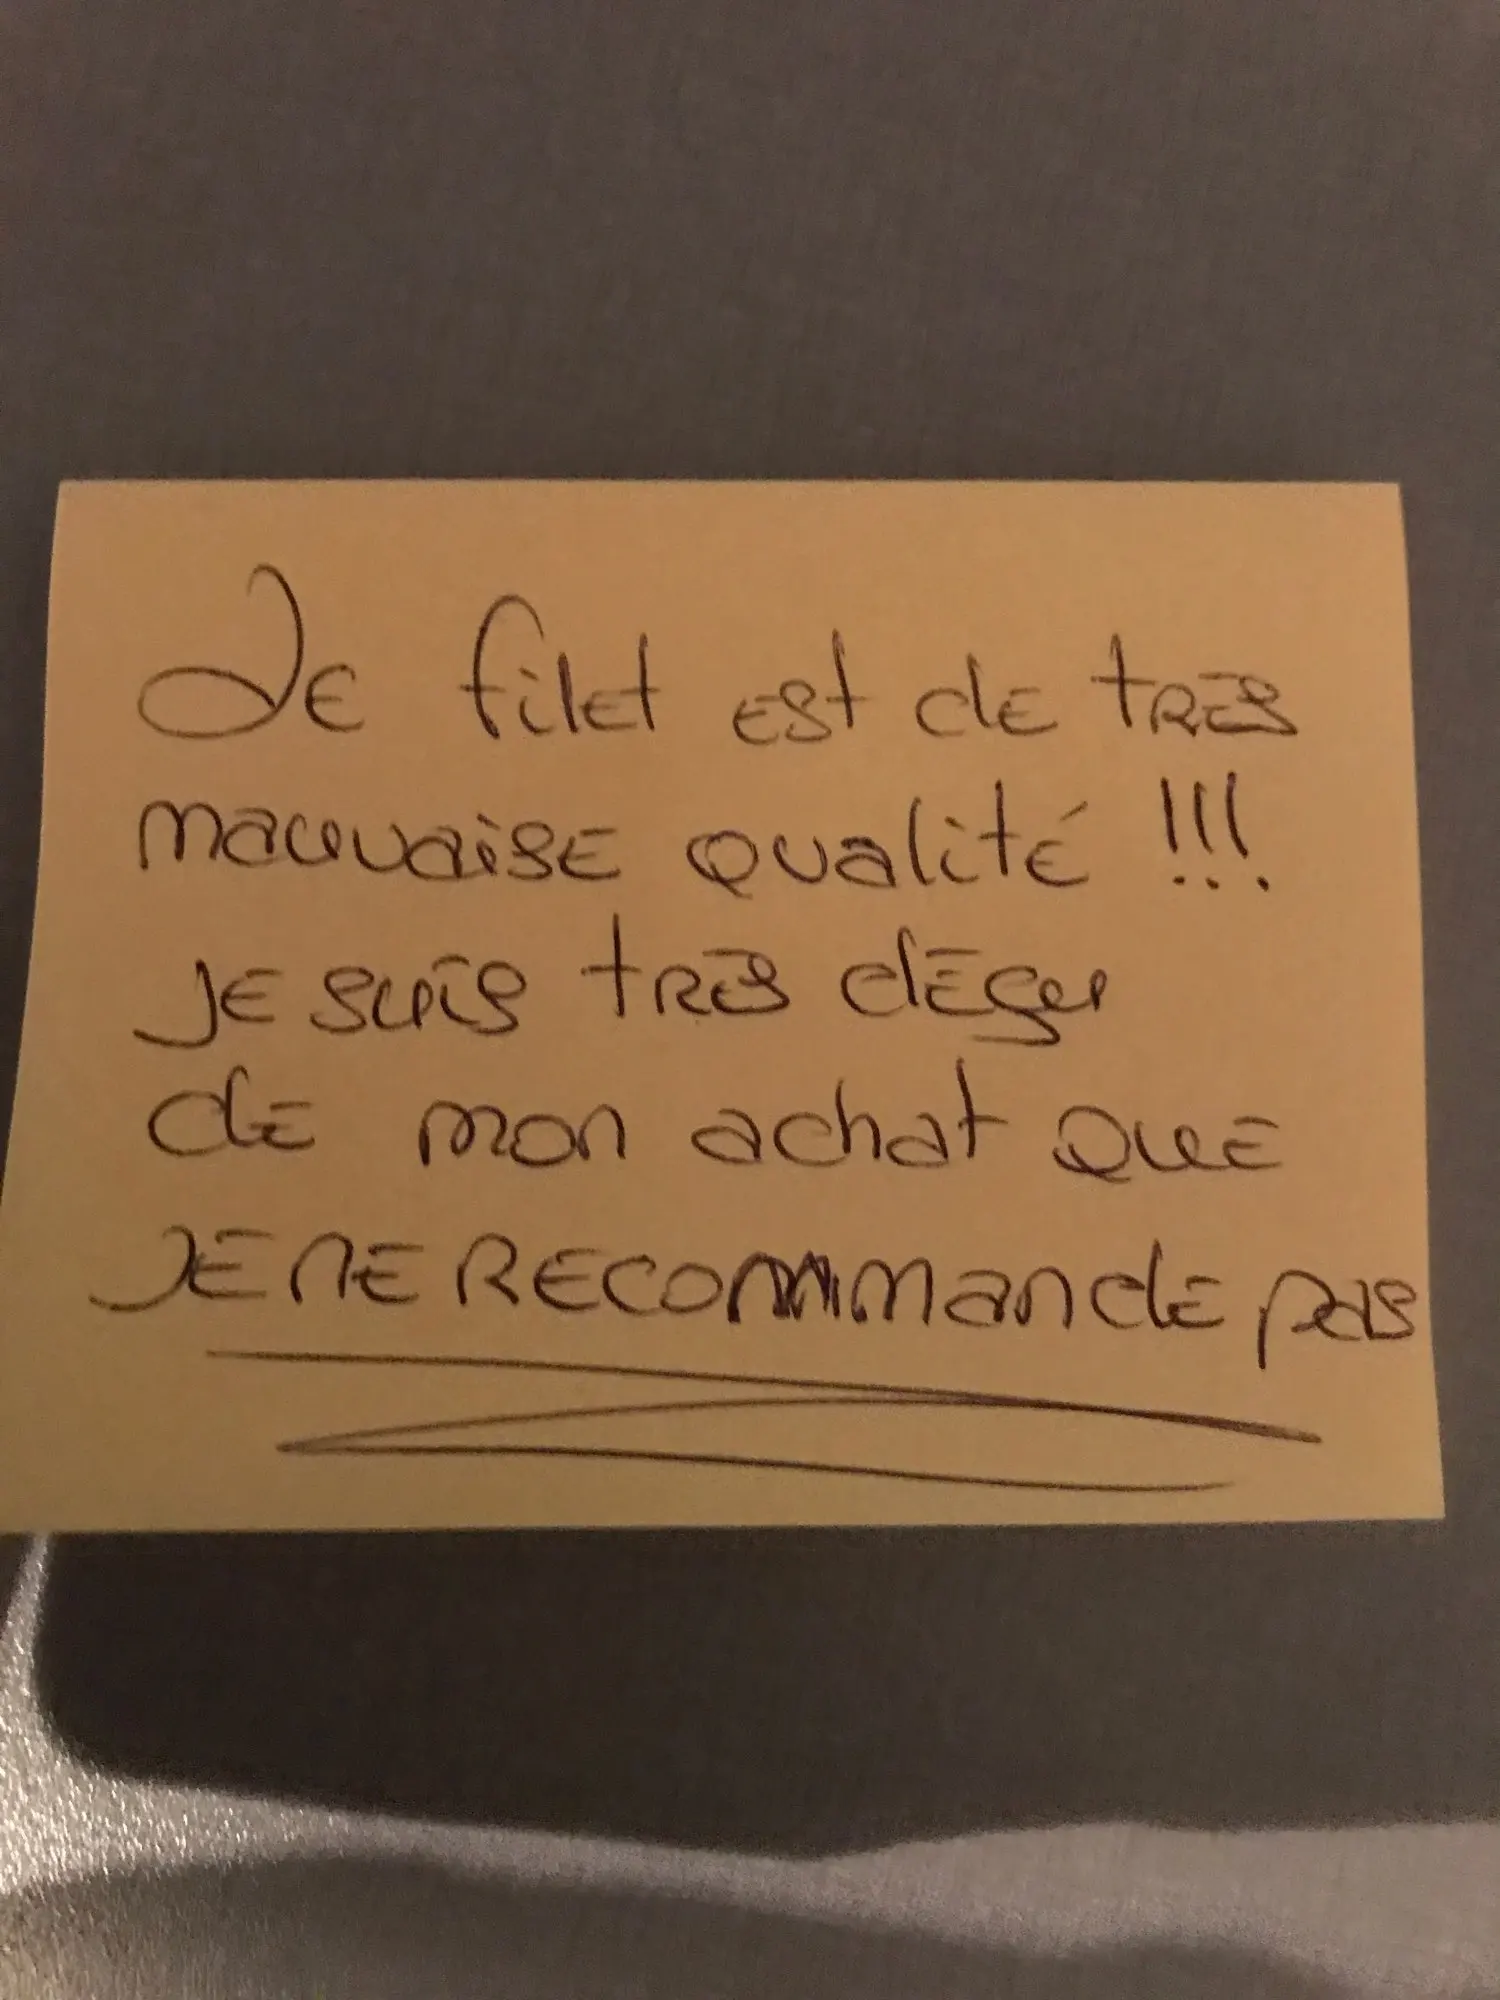 Le filet est de très
mauvaise qualité !!!
je suis très déçu
de mon achat que
je ne recommande pas